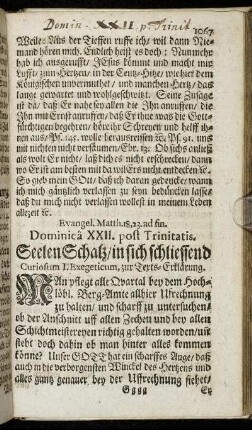 Domin. XXII p. Trinit.
1067
Weile: Aus der Tieffen ruffe ich/ wil dann Nie-
mand hören mich. Endlich heist es doch: Nunmehr
hab ich ausgerufft/ JEsus kömmt und macht mir
Lufft/ zum Hertzen/ in der Centz-Hitze/ wie hier dem
Königschen unvermuthet/ und manchen Hertz/ das
lange gewartet und wolgeschwitzt. Seine Zusage
ist da/ daß Er nahe sey allen die Ihn anruffen/ die
Ihn mit Ernst anruffen/ daß Er thue was die Gott-
fürchtigen begehren/ höre ihr Schreyen und helff ih-
nen aus/ Ps. 145. wolle der aus reissen &c. Ps. 91. uns
mit nichten nicht versäumen/ Ebr. 13. Ob sichs anließ
als wolt Er nicht/ laß dich es nicht erschrecken/ dann
wo Er ist am besten mit da wil Ers nicht entdecken &c.
So gieb mein GOtt/ daß ich daran gedencke/ wann
ich mich gäntzlich verlassen zu seyn bedüncken lasse/
daß du mich nicht verlassen wollest in meinem Leben
allezeit &c.
Evangel. Matth. 18, 23. ad fin.
Dominicâ XXII. post Trinitatis.
Seelen Schatz/ in sich schliessend
Curiosum I. Exegeticum, zur Texts-Erklärung.
MAn pflegt alle Qvartal bey dem Hoch-
löbl. Berg-Amte allhier Ufrechnung
zu halten/ und scharff zu untersuchen/
ob der Anschnitt uff allen Zechen und bey allen
Schichtmeistereyen richtig gehalten worden/ uñ
steht doch dahin ob man hinter alles kommen
könne? Unser GOTT hat ein scharffes Auge/ daß
auch in die verborgensten Winckel des Hertzens und
alles gantz genauer bey der Ufrechnung siehet/
Gggg
Er